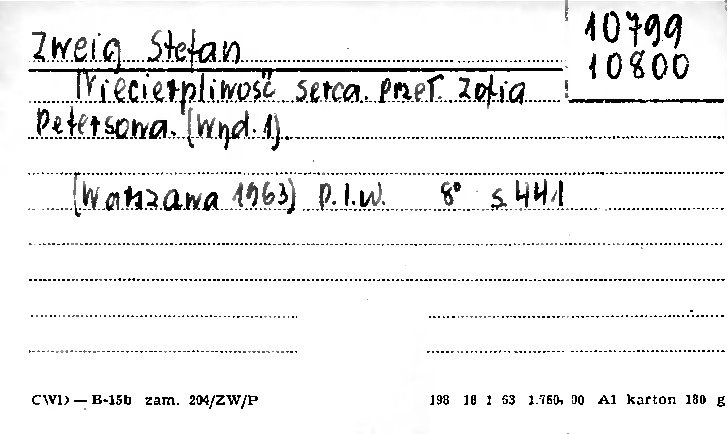 10799
10800
Zweig Stefan
Niecierpliwość serca. przeł. Zofia
Petersowa. (Wyd. 1).
(Warszawa 1963) P.I.W. 8° s. 441
CWD — B-15b zam. 204/ZW/P
198 18 1 63 1.760, 00 A1 karton 180 g